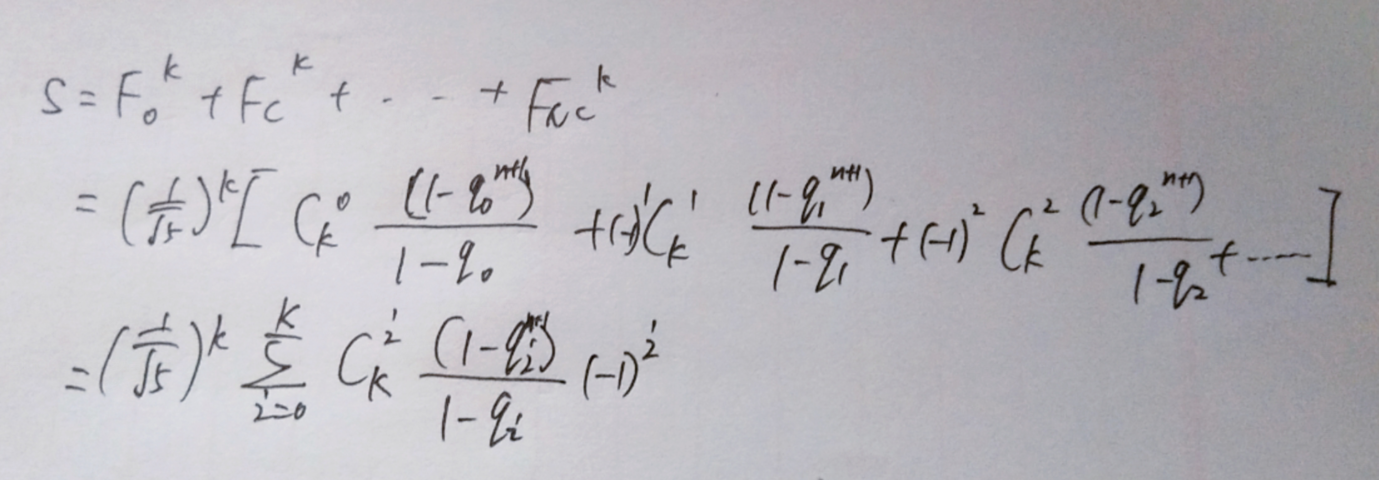 S = F_0^k + F_c^k + ⋯ + F_{nc}^k
= (1/√5)^k [ C_k^0 (1-q_0^{n+1})/(1-q_0) + (-1)^1 C_k^1 (1-q_1^{n+1})/(1-q_1) + (-1)^2 C_k^2 (1-q_2^{n+1})/(1-q_2) + ⋯⋯ ]
= (1/√5)^k ∑_{i=0}^{k} C_k^i (1-q_i^{n+1})/(1-q_i) (-1)^i